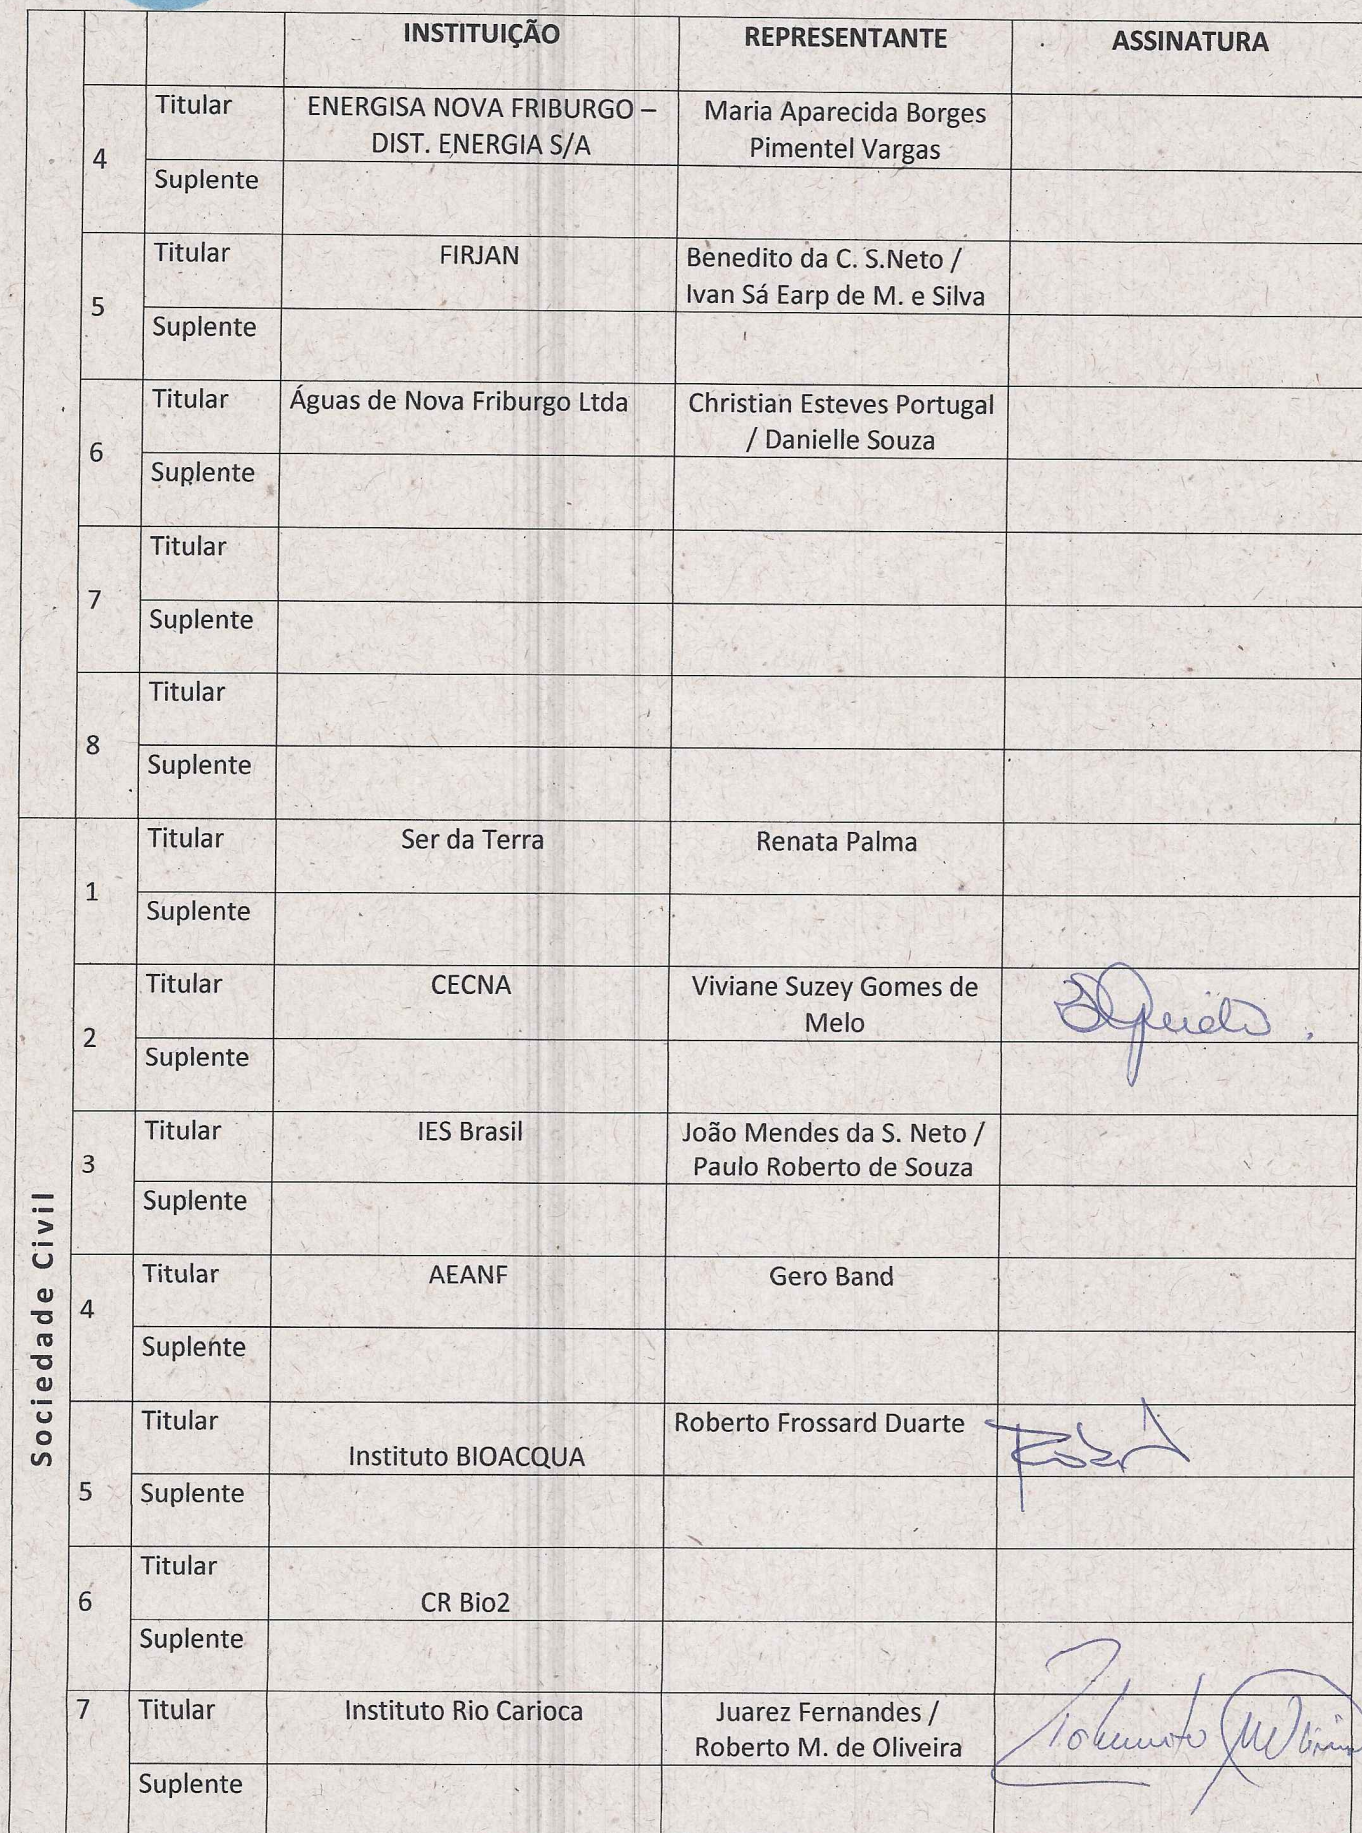 INSTITUIÇÃO REPRESENTANTE ASSINATURA
4
Titular
ENERGISA NOVA FRIBURGO –
DIST. ENERGIA S/A
Maria Aparecida Borges
Pimentel Vargas
Suplente
5
Titular
FIRJAN
Benedito da C. S.Neto /
Ivan Sá Earp de M. e Silva
Suplente
6
Titular
Águas de Nova Friburgo Ltda
Christian Esteves Portugal
/ Danielle Souza
Suplente
7
Titular
Suplente
8
Titular
Suplente
Sociedade Civil
1
Titular
Ser da Terra
Renata Palma
Suplente
2
Titular
CECNA
Viviane Suzey Gomes de
Melo
Suplente
3
Titular
IES Brasil
João Mendes da S. Neto /
Paulo Roberto de Souza
Suplente
4
Titular
AEANF
Gero Band
Suplente
5
Titular
Instituto BIOACQUA
Roberto Frossard Duarte
Suplente
6
Titular
CR Bio2
Suplente
7
Titular
Instituto Rio Carioca
Juarez Fernandes /
Roberto M. de Oliveira
Suplente